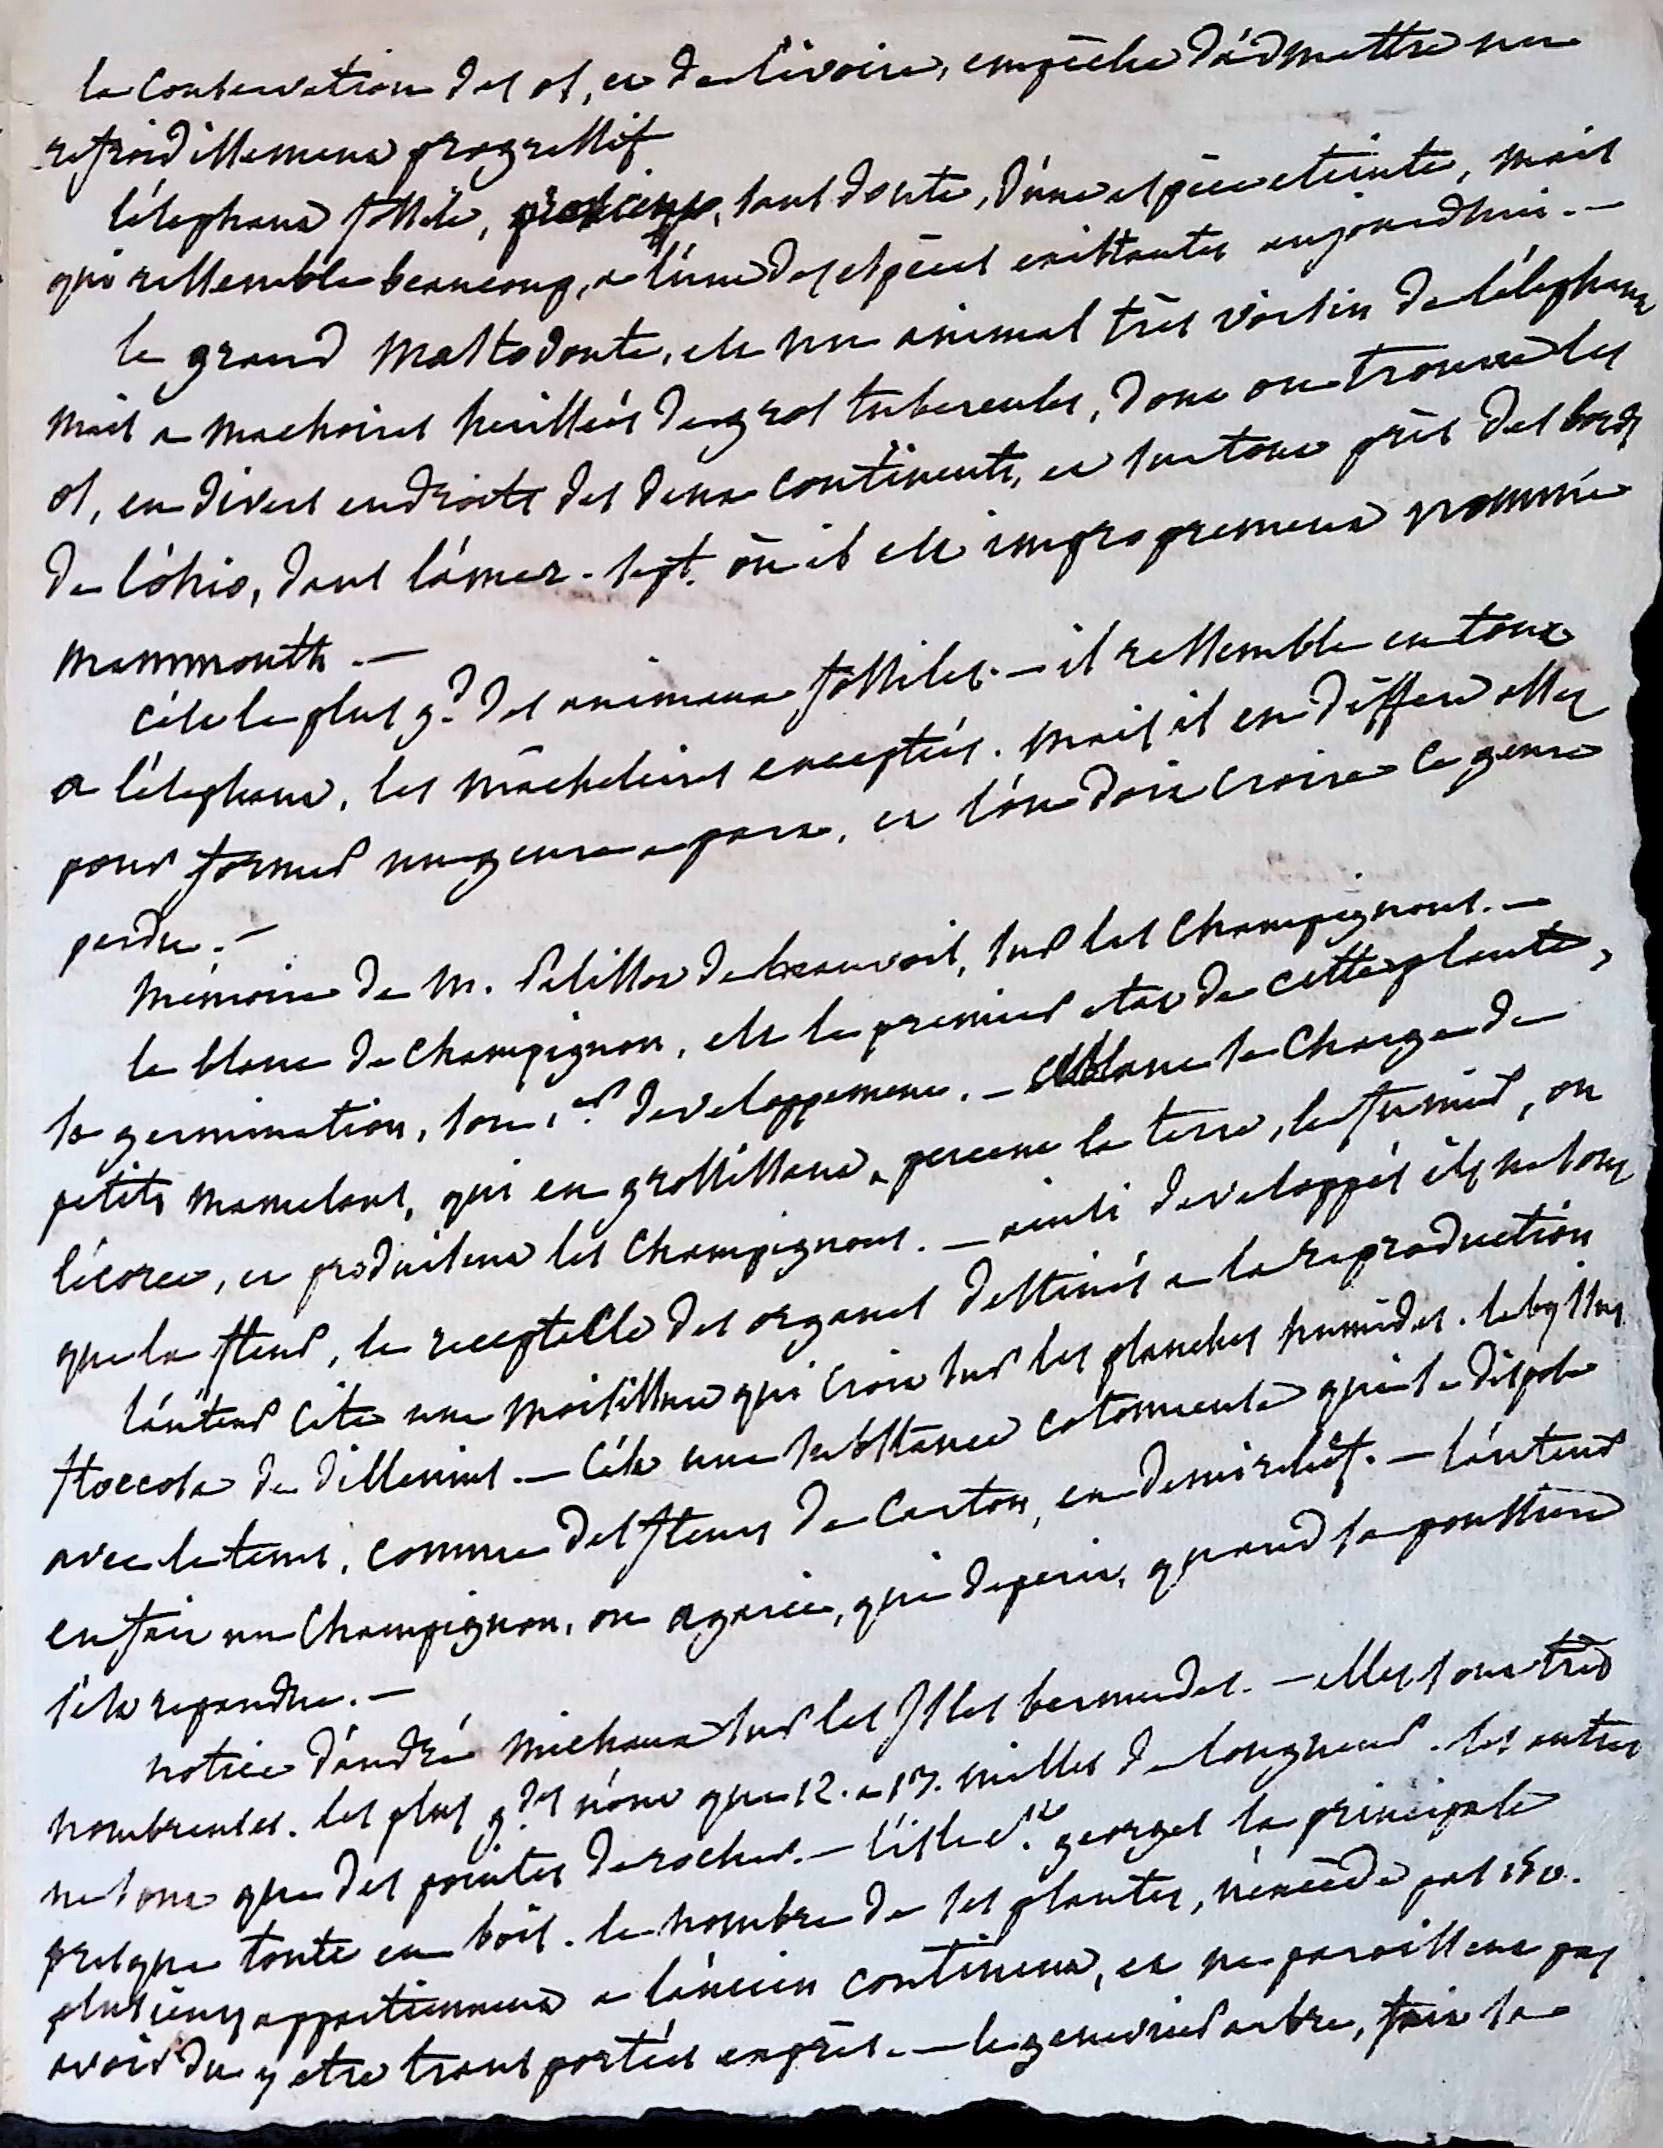 la conservation des os, et de l'ivoire, empêche d'admettre un
refroidissement progressif
l'élephant fossile, sans doute, d'une espèce eteinte, mais
qui ressemble beaucoup, a l'une des espèces existantes aujourdhui. —
le grand mastodonte, est un animal très voisin de l'élephant
mais a machoires herissées de gros tubercules, dont on trouve les
os, en divers endroits des deux continents, et surtout près des bords
de l'ohio, dans l'amer. sept. où il est improprement nommé
mammouth. —
c'est le plus gd. des animaux fossiles. — il ressemble en tout
a l'élephant, les mâchelieres exceptées. mais il en differe assez
pour former un genre a part, et l'on doit croire ce genre
perdu. —
mémoire de m. Palissot de beauvois, sur les champignons. —
le blanc de champignon, est le premier etat de cette plante,
sa germination, son 1er. developpement. — ce blanc se charge de
petits mamelons, qui en grossissant, percent la terre, le fumier, ou
l'écorce, et produisent les champignons. — ainsi developpés ils ne sont
que la fleur, le receptacle des organes destinés a la reproduction
l'auteur cite une moisissure qui croit sur les planches humides. le byssus
floccosa de dillenius. — c'est une substance cotoneuse qui se dispose
avec le tems, comme des fleurs de carton, en demi relief. — l'auteur
en fait un champignon, ou agaric, qui deperit, quand sa poussiere
s'est repandue. —
notice d'andré michaux sur les isles bermudes. — elles sont très
nombreuses. les plus gdes n'ont que 12. a 13. milles de longueur. les autres
ne sont que des pointes de rocher. — l'isle St. georges la principale
presque toute en bois. le nombre de ses plantes, n'excède pas 150.
plusieurs appartiennent a l'ancien continent, et ne paroissent pas
avoir du y etre transportées exprès. — le genevrier arbre, fait la